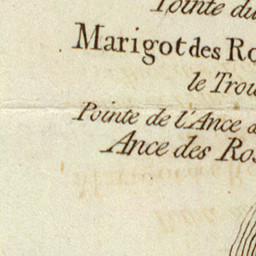 Pointe du
Marigot des Ro
le Trou
Pointe de l'Ance d
Ance des Ros